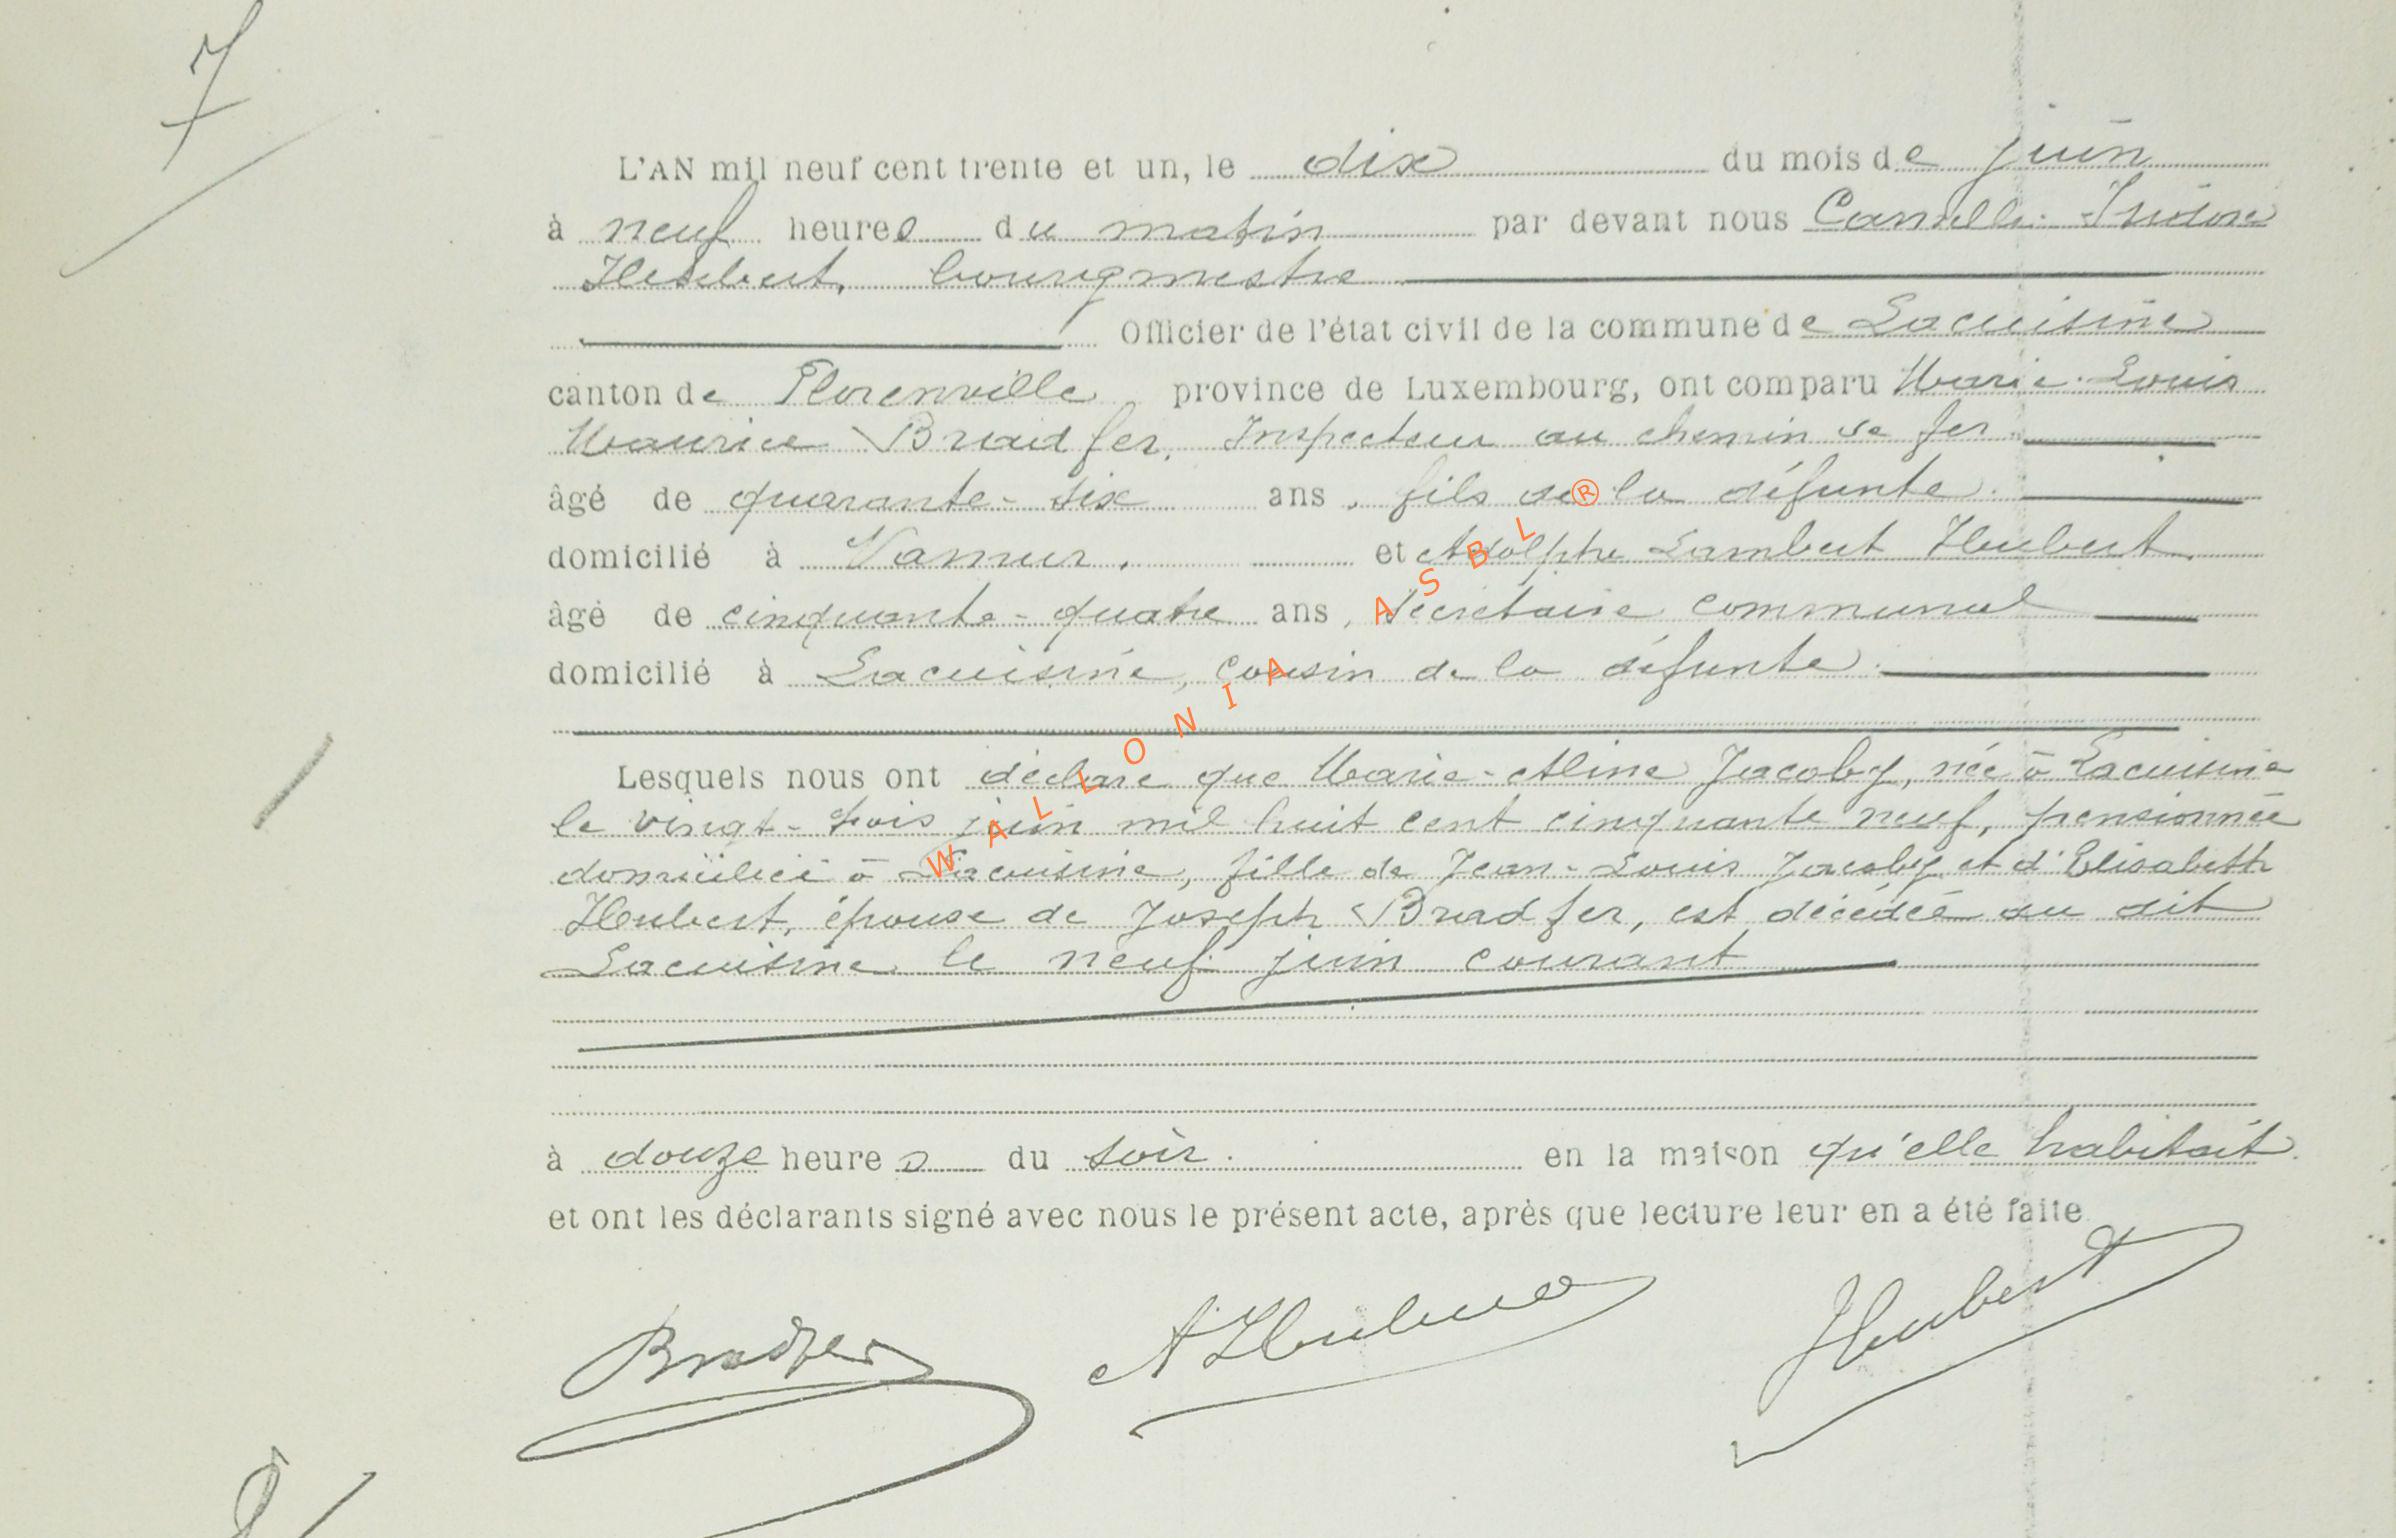 7
L'AN mil neuf cent trente et un, le dix du mois de juin
à neuf heures du matin par devant nous Camille Isidore
Hubert, bourgmestre
Officier de l'état civil de la commune de Lacuisine
canton de Florenville province de Luxembourg, ont comparu Marie-Louis
Maurice Bradfer, Inspecteur au chemin de fer
âgé de quarante-six ans, fils de la défunte.
domicilié à Namur, et Adolphe Lambert Hubert,
âgé de cinquante-quatre ans, secrétaire communal
domicilié à Lacuisine, cousin de la défunte.
Lesquels nous ont déclaré que Marie-Aline Jacoby, née à Lacuisine
le vingt-trois juin mil huit cent cinquante neuf, pensionnée
domiciliée à Lacuisine, fille de Jean-Louis Jacoby et d'Elisabeth
Hubert, épouse de Joseph Bradfer, est décédée au dit
Lacuisine le neuf juin courant
à douze heures du soir. en la maison qu'elle habitait.
et ont les déclarants signé avec nous le présent acte, après que lecture leur en a été faite
Bradfer A Hubert Hubert
8
WALLONIA ASBL ®